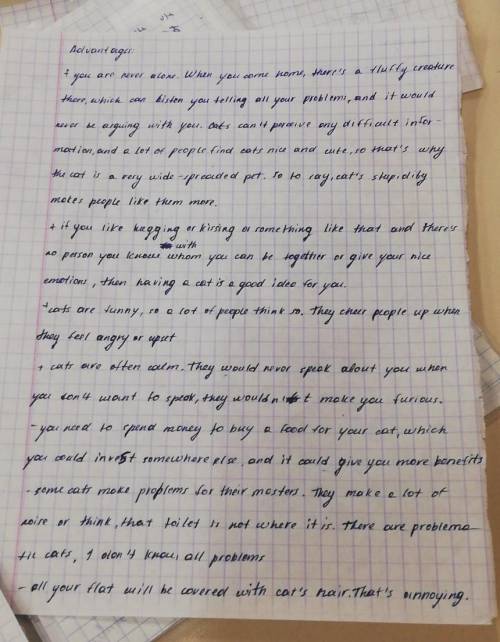 Advantages:
+ you are never alone. When you come home, there's a fluffy creature
there, which can listen you telling all your problems, and it would
never be arguing with you. Cats can't perceive any difficult infor-
mation, and a lot of people find cats nice and cute, so that's why
the cat is a very wide-spreaded pet. So to say, cat's stupidity
makes people like them more.
+ if you like hugging or kissing or something like that and there's
no person you know with whom you can be together or give your nice
emotions, then having a cat is a good idea for you.
+ cats are funny, so a lot of people think so. They cheer people up when
they feel angry or upset
+ cats are often calm. They would never speak about you when
you don't want to speak, they wouldn't make you furious.
- you need to spend money to buy a food for your cat, which
you could invest somewhere else, and it could give you more benefits
- some cats make problems for their masters. They make a lot of
noise or think, that toilet is not where it is. There are problema
tic cats, I don't know all problems
- all your flat will be covered with cat's hair. That's annoying.